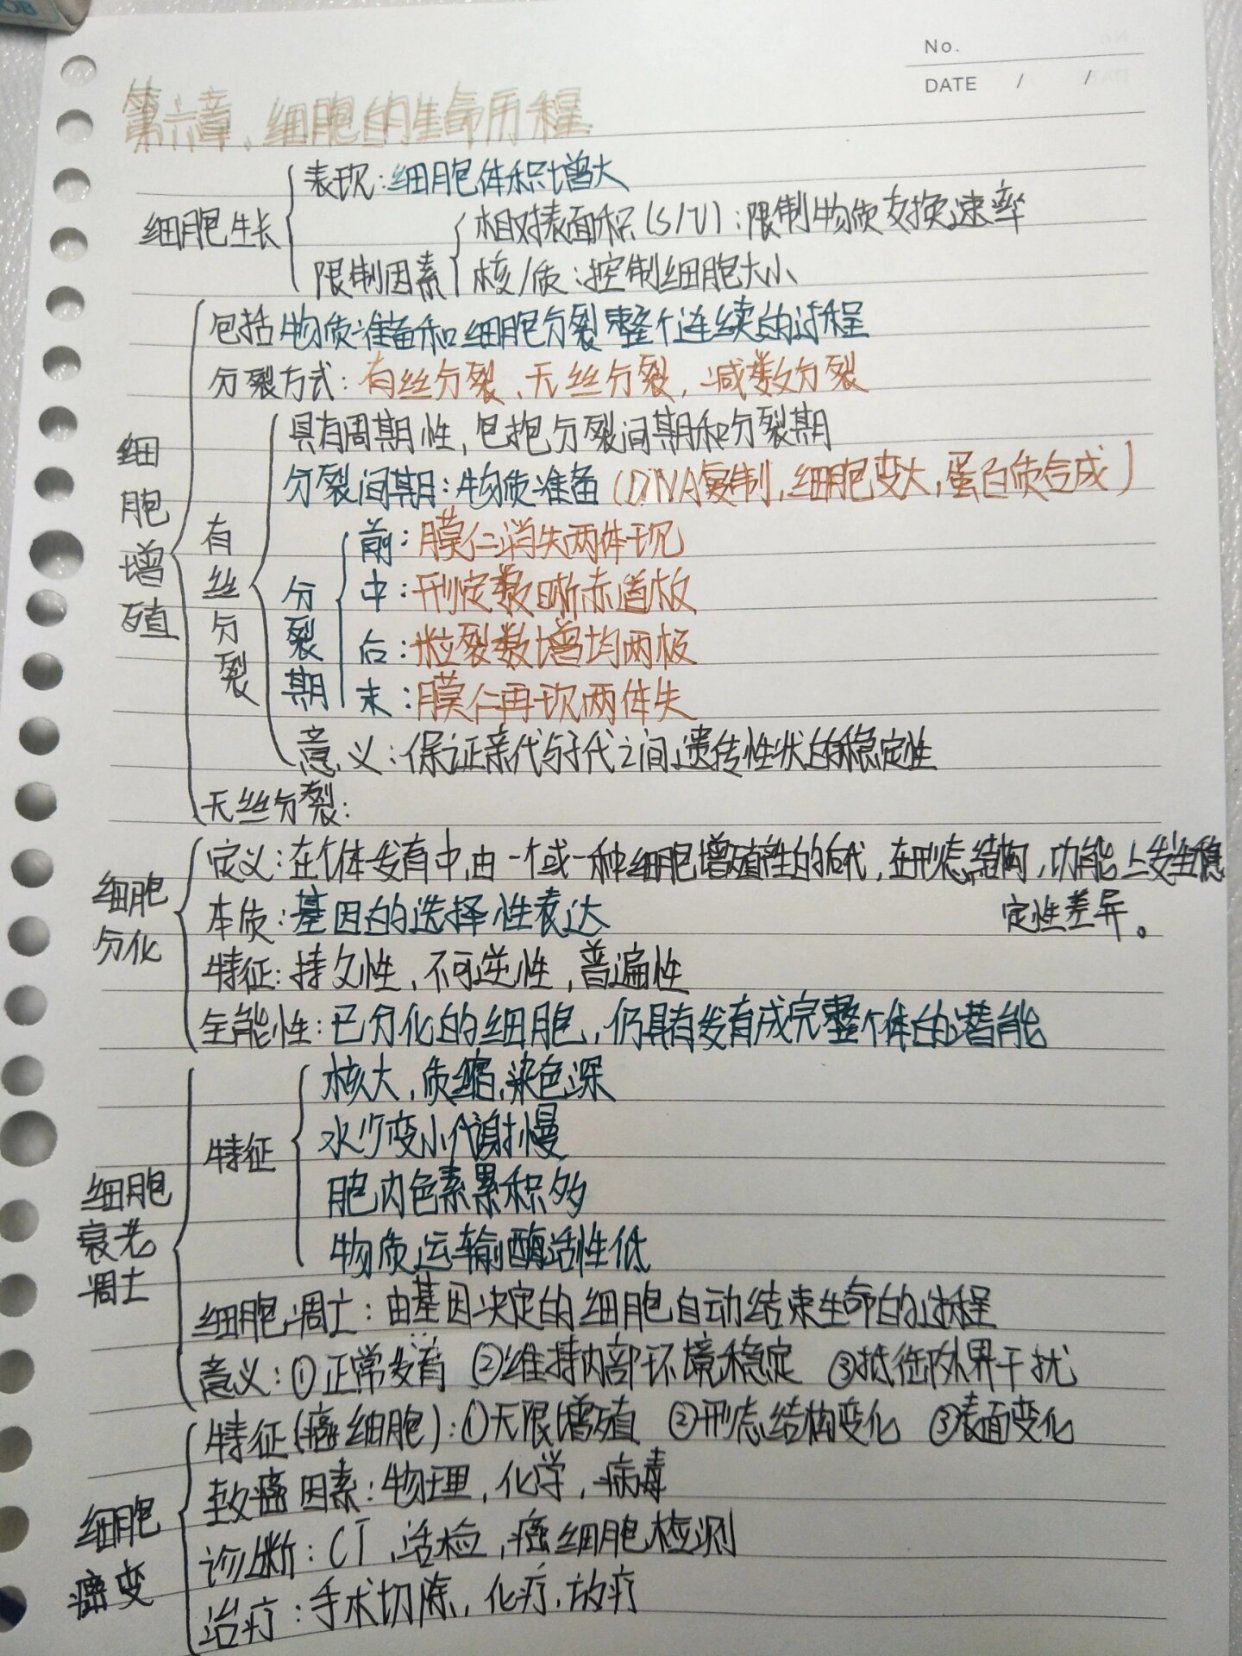 No.
DATE / /
第六章、细胞的生命历程
表现:细胞体积增大
细胞生长
相对表面积(S/V):限制物质交换速率
限制因素
核/质:控制细胞大小
包括物质准备和细胞分裂整个连续的过程
分裂方式:有丝分裂、无丝分裂,减数分裂
细胞增殖
具有周期性,包抱分裂间期和分裂期
分裂间期:物质准备(DNA复制,细胞变大,蛋白质合成)
有丝分裂
分裂期
前:膜仁消失两体现
中:形定数晰赤道板
后:粒裂数增均两极
末:膜仁再现两体失
意义:保证亲代与子代之间遗传性状的稳定性
无丝分裂:
细胞分化
定义:在个体发育中,由一个或一种细胞增殖产生的后代,在形态,结构,功能上发生稳
定性差异。
本质:基因的选择性表达
特征:持久性,不可逆性,普遍性
全能性:已分化的细胞,仍具有发育成完整个体的潜能
细胞衰老凋亡
特征
核大,质缩,染色深
水少变小代谢慢
胞内色素累积多
物质运输酶活性低
细胞凋亡:由基因决定的细胞自动结束生命的过程
意义:①正常发育 ②维持内部环境稳定 ③抵御外界干扰
细胞癌变
特征(癌细胞):①无限增殖 ②形态结构变化 ③表面变化
致癌因素:物理,化学,病毒
诊断:CT,活检,癌细胞检测
治疗:手术切除,化疗,放疗